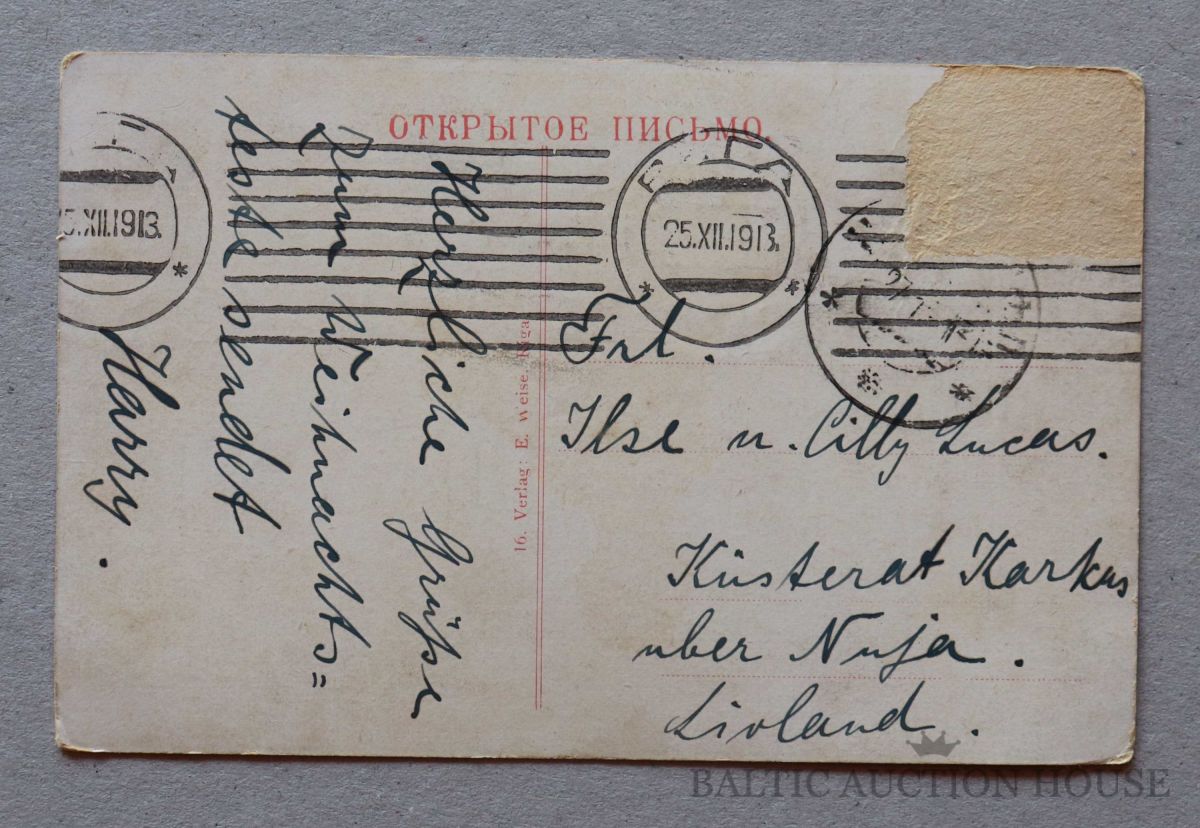 ОТКРЫТОЕ ПИСЬМО.
5.XII.1913.
25.XII.1913.
Herzliche Grüsse
zum Weihnachts=
feste sendet
Harry.
16. Verlag: E. Weise, Riga
Frl.
Ilse u. Cilly Lucas.
Küsterat Karkus
über Nuja.
Livland.
BALTIC AUCTION HOUSE